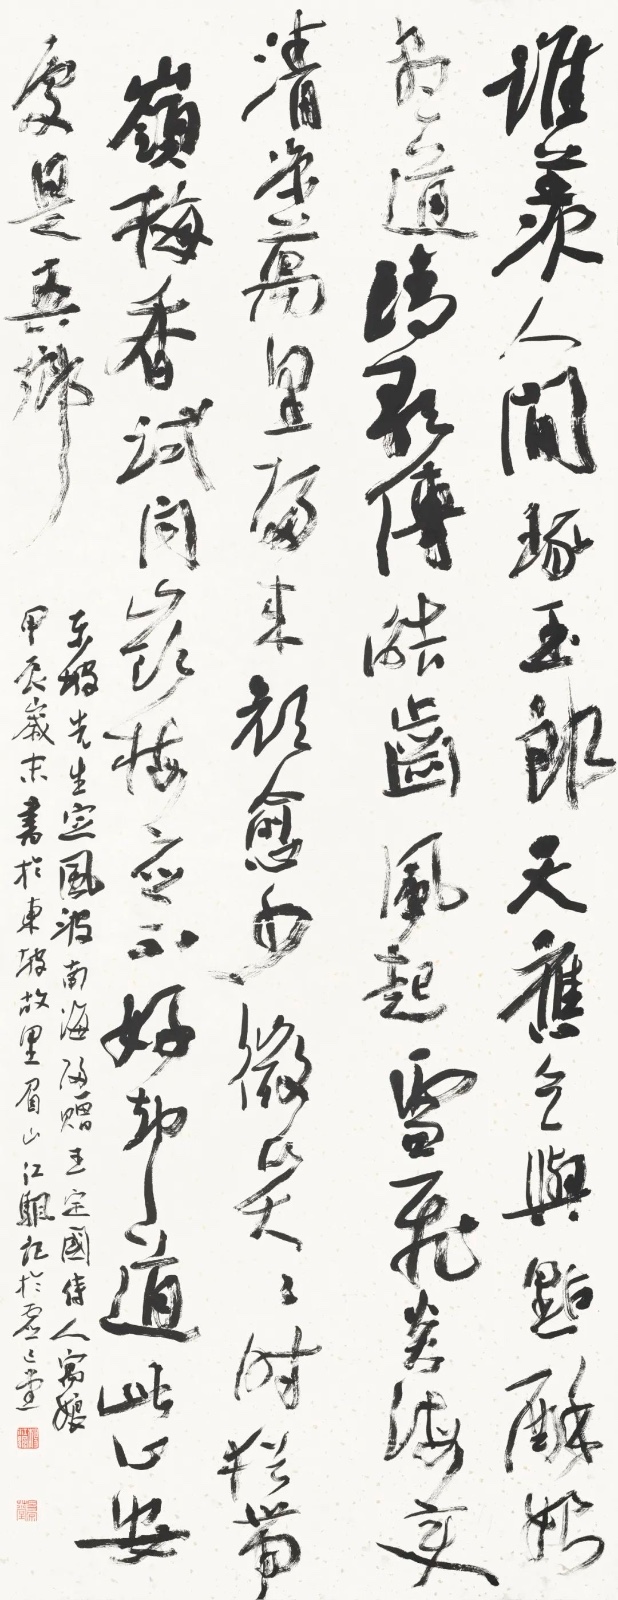 誰羨人間琢玉郎天應乞與點酥娘
盡道清歌傳皓齒風起雪飛炎海變
清涼萬里歸來顏愈少微笑〻時猶帶
嶺梅香試問嶺梅應不好却道此心安
處是吾鄉
東坡先生定風波南海歸贈王定國侍人寓娘
甲辰歲末書於東坡故里眉山江記於堂